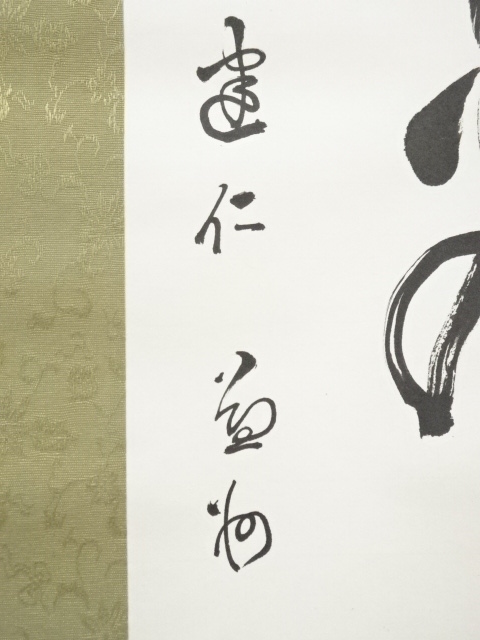 建仁 益州